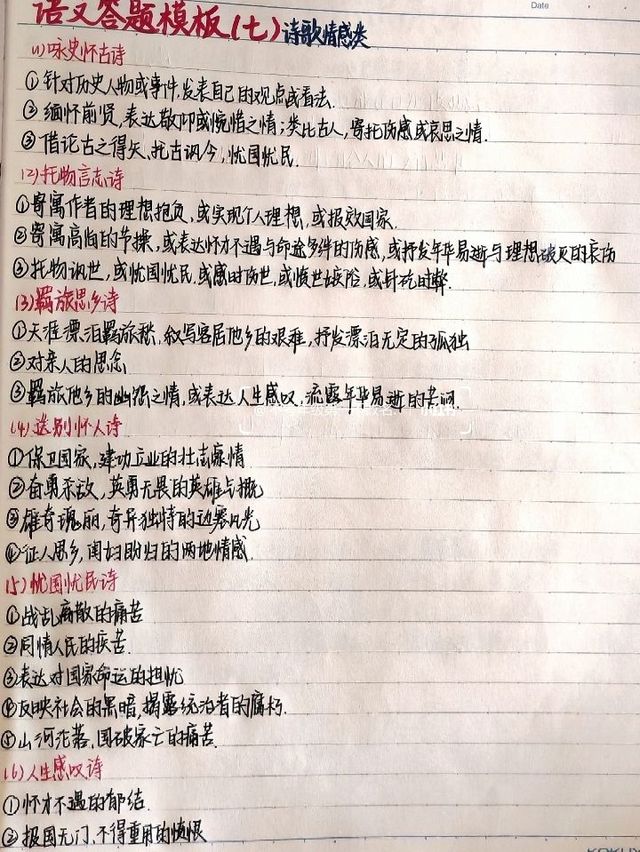 语文答题模板(七)诗歌情感类
Date
(1)咏史怀古诗
①针对历史人物或事件,发表自己的观点或看法.
②缅怀前贤,表达敬仰或惋惜之情;类比古人,寄托伤感或哀思之情.
③借论古之得失,托古讽今,忧国忧民.
(2)托物言志诗
①寄寓作者的理想抱负,或实现个人理想,或报效国家.
②寄寓高尚的节操,或表达怀才不遇与命途多舛的伤感,或抒发年华易逝与理想破灭的哀伤
③托物讽世,或忧国忧民,或感时伤世,或愤世嫉俗,或针砭时弊.
(3)羁旅思乡诗
①天涯漂泊羁旅愁,叙写客居他乡的艰难,抒发漂泊无定的孤独
②对亲人的思念
③羁旅他乡的幽怨之情,或表达人生感叹,流露年华易逝的苦闷.
(4)送别怀人诗
①保卫国家,建功立业的壮志豪情
②奋勇杀敌,英勇无畏的英雄气概
③雄奇瑰丽,奇异独特的边塞风光
④征人思乡,闺妇盼归的两地情感.
(5)忧国忧民诗
①战乱离散的痛苦
②同情人民的疾苦.
③表达对国家命运的担忧
④反映社会的黑暗,揭露统治者的腐朽.
⑤山河沦落,国破家亡的痛苦.
(6)人生感叹诗
①怀才不遇的郁结.
②报国无门、不得重用的愤恨